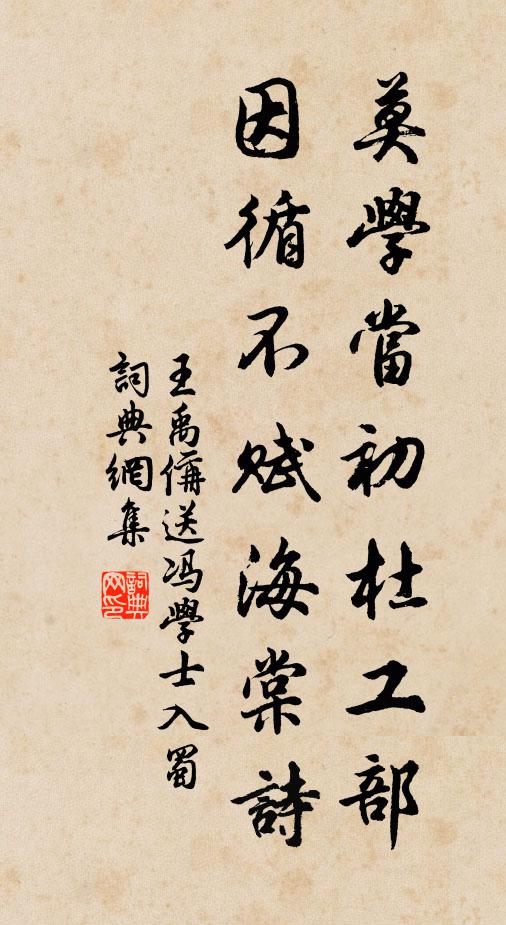 莫學當初杜工部
因循不赋海棠詩
王禹偁送冯學士入蜀
詞典網集
詞典网印